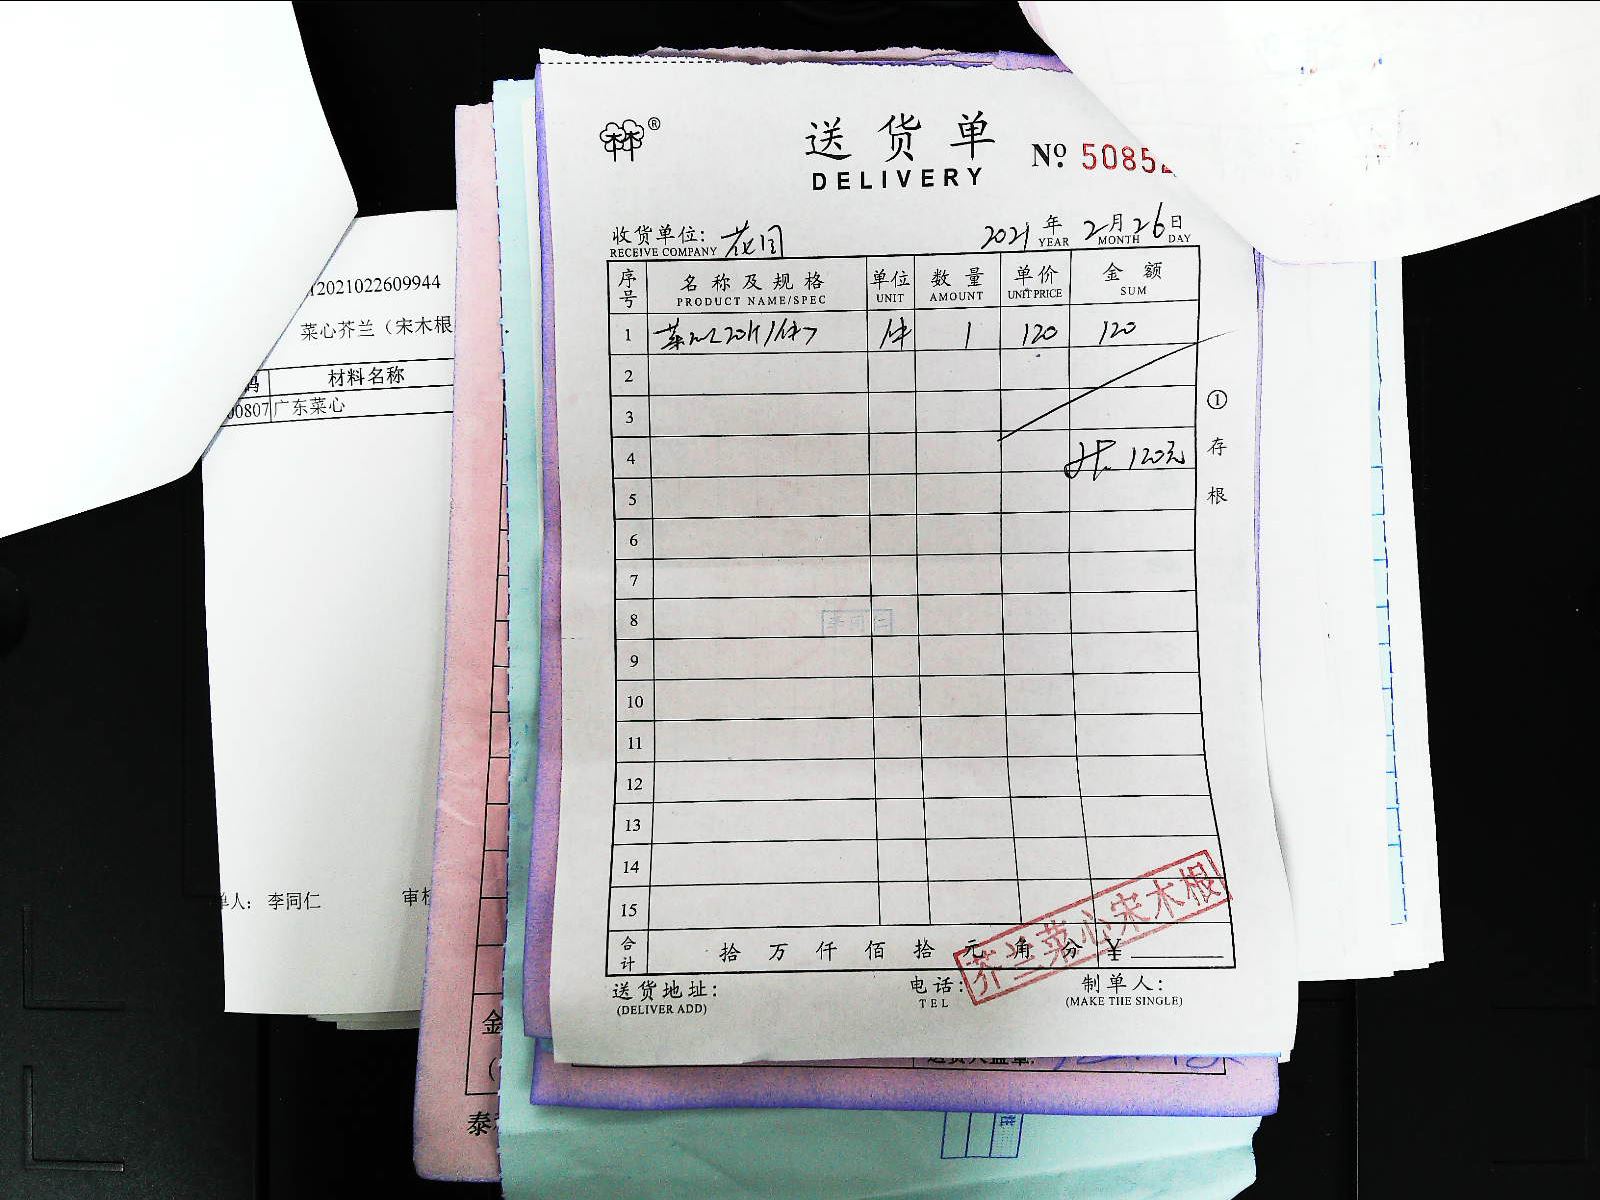 ®
送 货 单
DELIVERY
Nº 5085
收货单位: 花园
RECEIVE COMPANY
2021 年 2 月 26 日
YEAR MONTH DAY
序号 名称及规格 单位 数量 单价 金额
PRODUCT NAME/SPEC UNIT AMOUNT UNIT PRICE SUM
1 菜心20斤/件 件 1 120 120
2
3
4 共 120元
5
6
7
8 李同仁
9
10
11
12
13
14
15
① 存根
合计 拾 万 仟 佰 拾 元 角 分 ¥
芥兰菜心宋木根
送货地址: 电话: 制单人:
(DELIVER ADD) TEL (MAKE THE SINGLE)
12021022609944
菜心芥兰（宋木根
码 材料名称
00807 广东菜心
单人: 李同仁 审核
金
(
泰
送货人盖章: